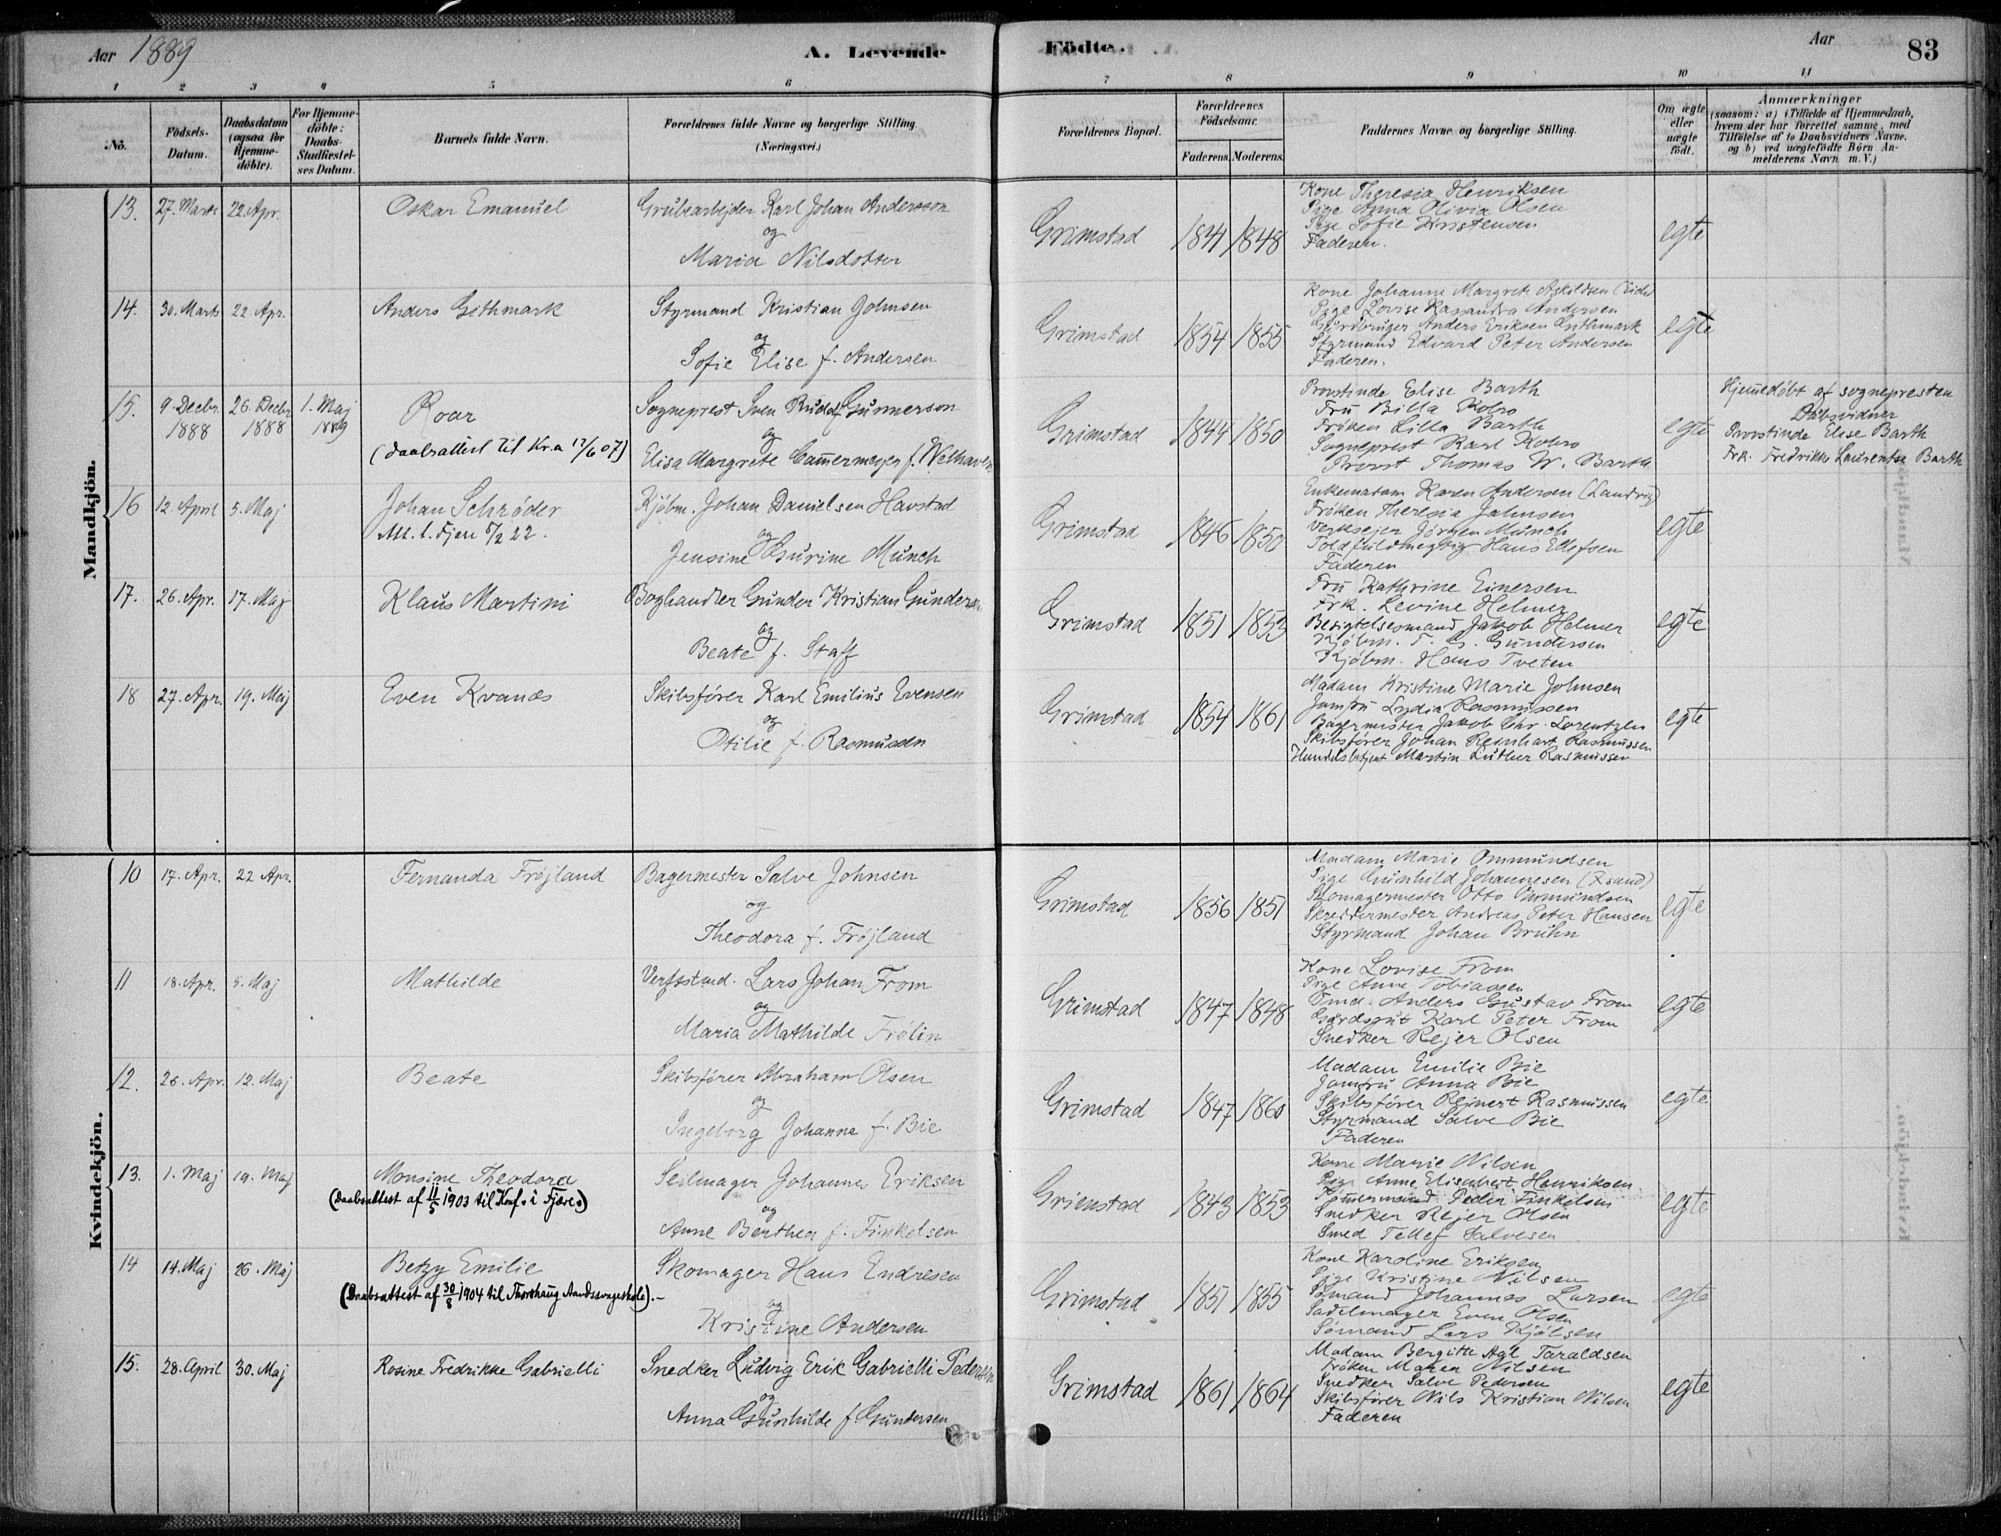 Aar 1889
A. Levende
Födte.
Aar
83
1 2 3 4 5 6 7 8 9 10 11
No.
Födsels-Datum.
Daabsdatum (ogsaa for Hjemme-döbte).
For Hjemme-döbte: Daabs-Stadfæstel-ses Datum.
Barnets fulde Navn.
Forældrenes fulde Navne og borgerlige Stilling (Næringsvei.)
Forældrenes Bopæl.
Forældrenes Födselsaar.
Faderens. Moderens.
Faddernes Navne og borgerlige Stilling.
Om ægte eller uægte födt.
Anmærkninger
(saasom: a) i Tilfælde af Hjemmedaab,
hvem der har forrettet samme, med
Tilföielse af to Daabsvidners Navne,
og b) ved uægtefödte Börn An-
melderens Navn m. V.)
Mandkjön.
13. 27. Marts 22. Apr. Oskar Emanuel
Grubearbejder Karl Johan Andersson
og
Maria Nilsdotter
Grimstad 1841 1848
Kone Theresia Henriksen
Pige Anna Olivia Olsen
Pige Sofie Kristensen
Faderen.
egte
14. 30. Marts 22. Apr. Anders Githmark
Styrmand Kristian Johnsen
og
Sofie Elise f. Andersen
Grimstad 1854 1855
Kone Johanne Margrete
Pige Lovise Kasandra Andersen
Gårdbruger Anders Eriksen Githmark
Styrmand Edvard Peter Andersen
Faderen.
egte
15. 9. Decbr. 1888 26. Decbr. 1888 1. Maj 1889 Roar
(Daabsattest til Kr.a 17/6 07)
Sogneprest Sven Rudolf Gunnerson
og
Elisa Margrete Cammermeyer f. Welhaven
Grimstad 1844 1850
Provstinde Elise Barth
Fru Billa Kobro
Frøken Lilla Barth
Sogneprest Karl Kobro
Provst Thomas W. Barth
egte
Hjemedøbt af sognepresten
Dåbsvidner
Provstinde Elise Barth
Frk. Fredrikke Laurentse Barth
16 12. April 5. Maj Johan Schrøder
Att. t. Fjære 5/2 22.
Kjøbm. Johan Danielsen Havstad
og
Jensine Gurine Münch
Grimstad 1846 1850
Enkemadam Karen Andersen (Landvig)
Frøken Theresia Jahnsen
Verksejer Jørgen Münch
Toldfuldmegtig Hans Ellefsen
Faderen
egte
17. 26. Apr. 17. Maj Klaus Martini
Boghandler Gunder Kristian Gundersen
og
Beate f. Staff
Grimstad 1851 1853
Fru Kathrine Einersen
Frk. Levine Helmer
Besigtelsesmand Jakob Helmer
Kjøbm. T. G. Gundersen
Kjøbm. Hans Tveten
egte
18 27. Apr. 19. Maj Even Kvanes
Skibsfører Karl Emilius Evensen
og
Otilie f. Rasmussen
Grimstad 1854 1861
Madam Kristine Marie Johnsen
Jomfru Lydia Rasmussen
Bagermester Jakob Chr. Lorentzen
Skibsfører Johan Reinhart Rasmussen
Handelsbetjent Martin Luther Rasmussen
egte
Kvindekjön.
10 17. Apr. 22 Apr. Fernanda Frøjland
Bagermester Salve Johnsen
og
Theodora f. Frøjland
Grimstad 1856 1851
Madam Marie Ommundsen
Pige Gunhild Johannesen
Skomagermester Otto Ommundsen
Skreddermester Andreas Peter Hansen
Styrmand Johan Bruhn
egte
11 18. Apr. 5. Maj Mathilde
Verftstmd. Lars Johan From
og
Maria Mathilde Frölin
Grimstad 1847 1848
Kone Lovise From
Pige Anne Tobiassen
Tmd. Anders Gustav From
Gårdsgut Karl Peter From
Snedker Rejer Olsen
egte
12. 26. Apr. 12. Maj Beate
Skibsfører Abraham Olsen
og
Ingeborg Johanne f. Bie
Grimstad 1847 1860
Madam Emilie Bie
Jomfru Anna Bie
Skibsfører Rejnert Rasmussen
Styrmand Salve Bie
Faderen
egte
13. 1. Maj 19. Maj Monsine Theodora
(Daabsattest af 11/5 1903 til Konf. i Fjære)
Seilmager Johannes Eriksen
og
Anne Berthea f. Finkelsen
Grimstad 1843 1853
Kone Marie Nilsen
Pige Anne Elisabert Henriksen
Tømmermand Peder Finkelsen
Snedker Rejer Olsen
Smed Tellef Salvesen
egte
14 14. Maj 26. Maj Betzy Emilie
(Daabsattest af 30/8 1904 til Thorshaug Aandssvageskole).-
Skomager Hans Endresen
og
Kristine Andersen
Grimstad 1851 1855
Kone Karoline Eriksen
Pige Kristine Nilsen
Sømand Johannes Larsen
Sadelmager Even Olsen
Sømand Lars Kjølsen
egte
15. 28. April 30. Maj Rosine Fredrikke Gabrielli
Snedker Ludvig Erik Gabrielli Pedersen
og
Anna Gunhilde f. Gundersen
Grimstad 1861 1864
Madam Bergitte Taraldsen
Frøken Maren Nilsen
Snedker Salve Pedersen
Skibsfører Nils Kristian Nilsen
Faderen
egte